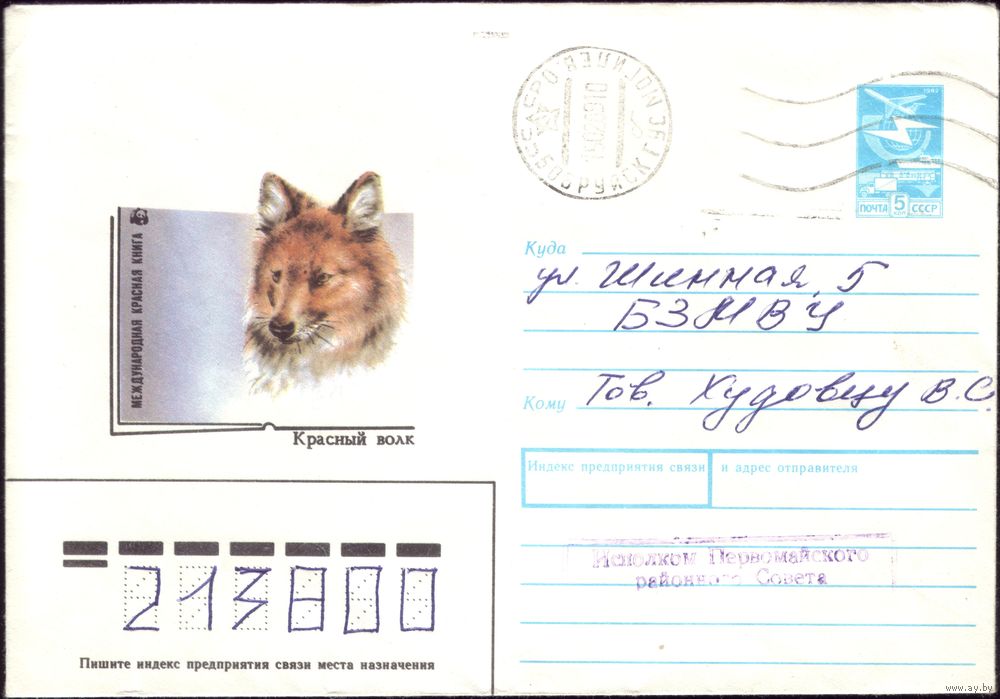 МЕЖДУНАРОДНАЯ КРАСНАЯ КНИГА
Красный волк
1982
ПОЧТА 5 КОП СССР
Куда
ул. Шинная, 5
БЗМВЦ
Кому Тов. Худовцу В.С.
Индекс предприятия связи и адрес отправителя
Исполком Первомайского
районного Совета
213800
Пишите индекс предприятия связи места назначения
www.ay.by